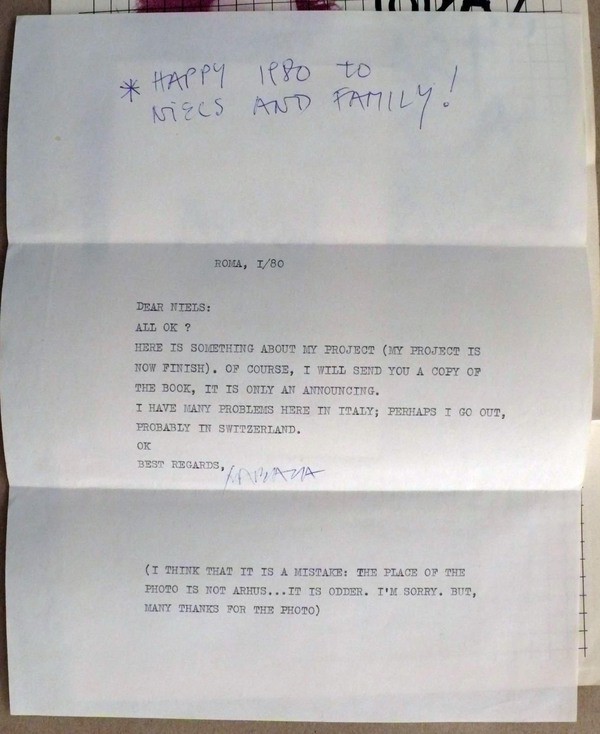 * HAPPY 1980 TO
NIELS AND FAMILY!
ROMA, I/80
DEAR NIELS:
ALL OK ?
HERE IS SOMETHING ABOUT MY PROJECT (MY PROJECT IS
NOW FINISH). OF COURSE, I WILL SEND YOU A COPY OF
THE BOOK, IT IS ONLY AN ANNOUNCING.
I HAVE MANY PROBLEMS HERE IN ITALY; PERHAPS I GO OUT,
PROBABLY IN SWITZERLAND.
OK
BEST REGARDS,
(I THINK THAT IT IS A MISTAKE: THE PLACE OF THE
PHOTO IS NOT ARHUS...IT IS ODDER. I'M SORRY. BUT,
MANY THANKS FOR THE PHOTO)